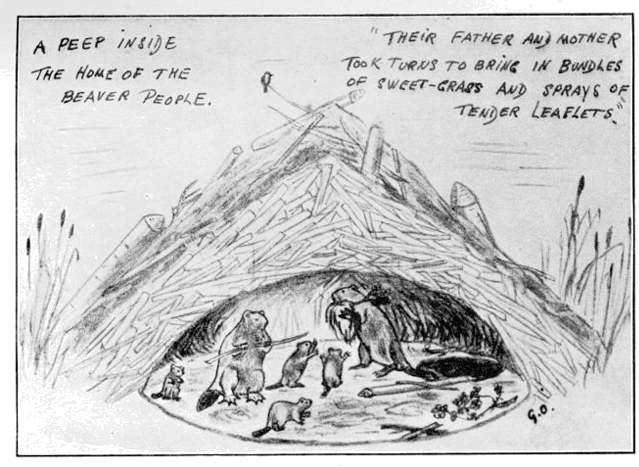 A PEEP INSIDE
THE HOME OF THE
BEAVER PEOPLE.
"THEIR FATHER AND MOTHER
TOOK TURNS TO BRING IN BUNDLES
OF SWEET-GRASS AND SPRAYS OF
TENDER LEAFLETS."
G.O.